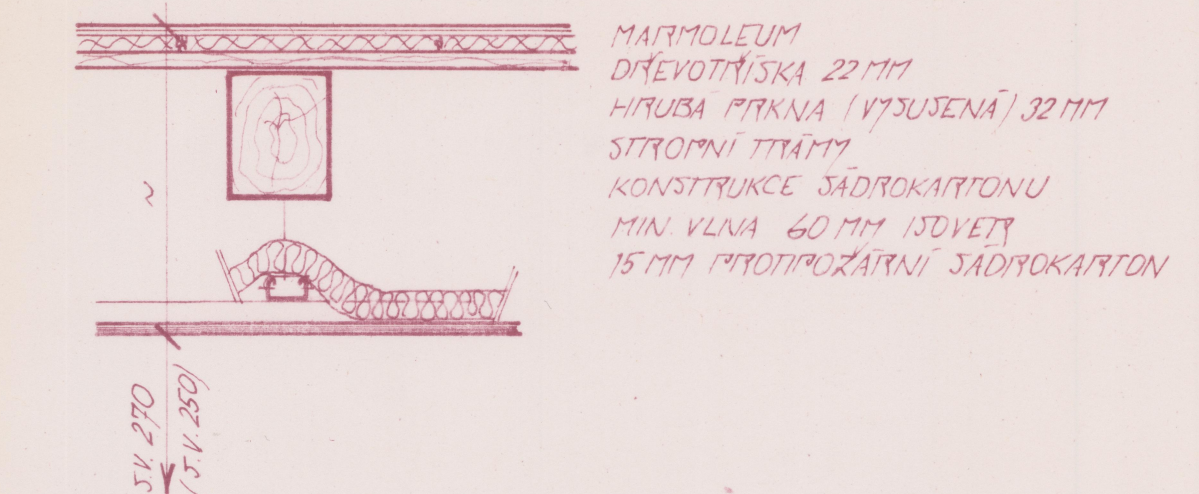 MARMOLEUM
DŘEVOTŘÍSKA 22 MM
HRUBÁ PRKNA (VYSUŠENÁ) 32 MM
STROPNÍ TRÁMY
KONSTRUKCE SÁDROKARTONU
MIN. VLNA 60 MM ISOVER
15 MM PROTIPOŽÁRNÍ SÁDROKARTON
~
S.V. 270
(S.V. 250)